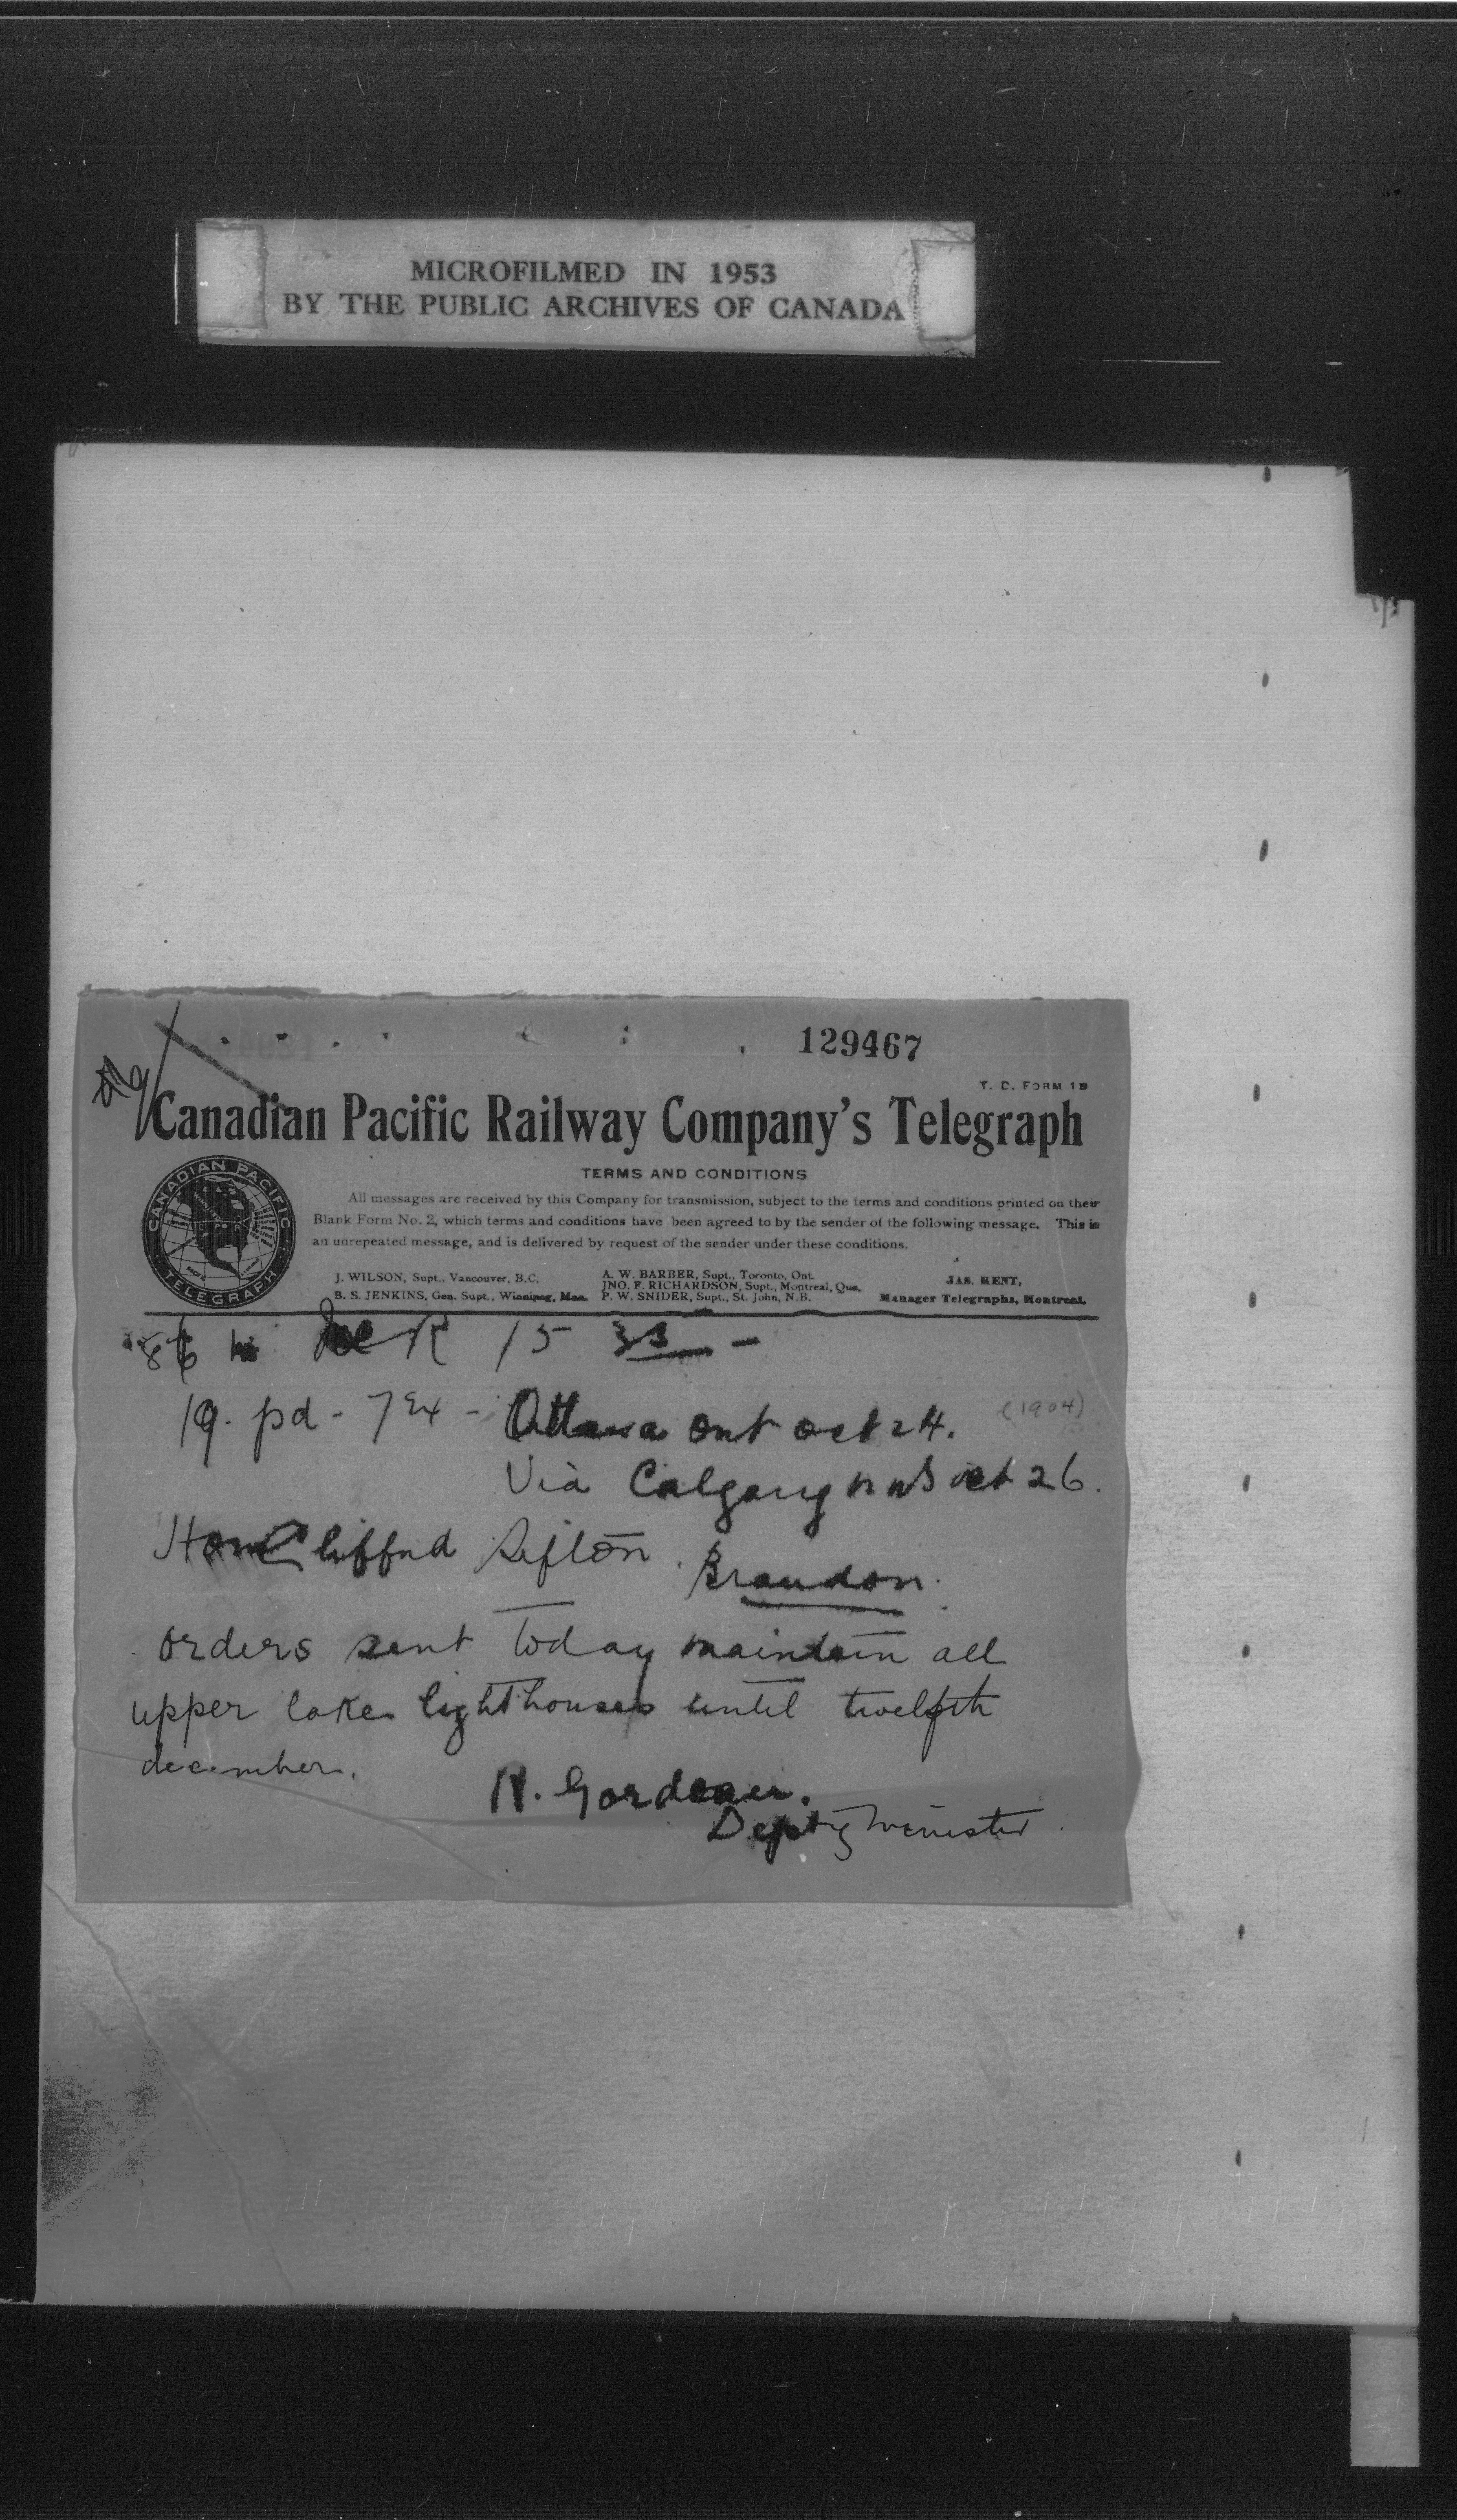 MICROFILMED IN 1953
BY THE PUBLIC ARCHIVES OF CANADA
129467
T. D. FORM 1B
Canadian Pacific Railway Company's Telegraph
TERMS AND CONDITIONS
All messages are received by this Company for transmission, subject to the terms and conditions printed on their
Blank Form No. 2, which terms and conditions have been agreed to by the sender of the following message. This is
an unrepeated message, and is delivered by request of the sender under these conditions.
CANADIAN PACIFIC
TELEGRAPH
J. WILSON, Supt., Vancouver, B.C.
B. S. JENKINS, Gen. Supt., Winnipeg, Man.
A. W. BARBER, Supt., Toronto, Ont.
JNO. F. RICHARDSON, Supt., Montreal, Que.
P. W. SNIDER, Supt., St. John, N.B.
JAS. KENT,
Manager Telegraphs, Montreal.
86 15
19. pd - Ottawa Ont oct 24. (1904)
Via Calgary oct 26.
Hon Clifford Sifton. Brandon.
orders sent today maintain all
upper lake lighthouses until twelfth
december.
Deputy minister.